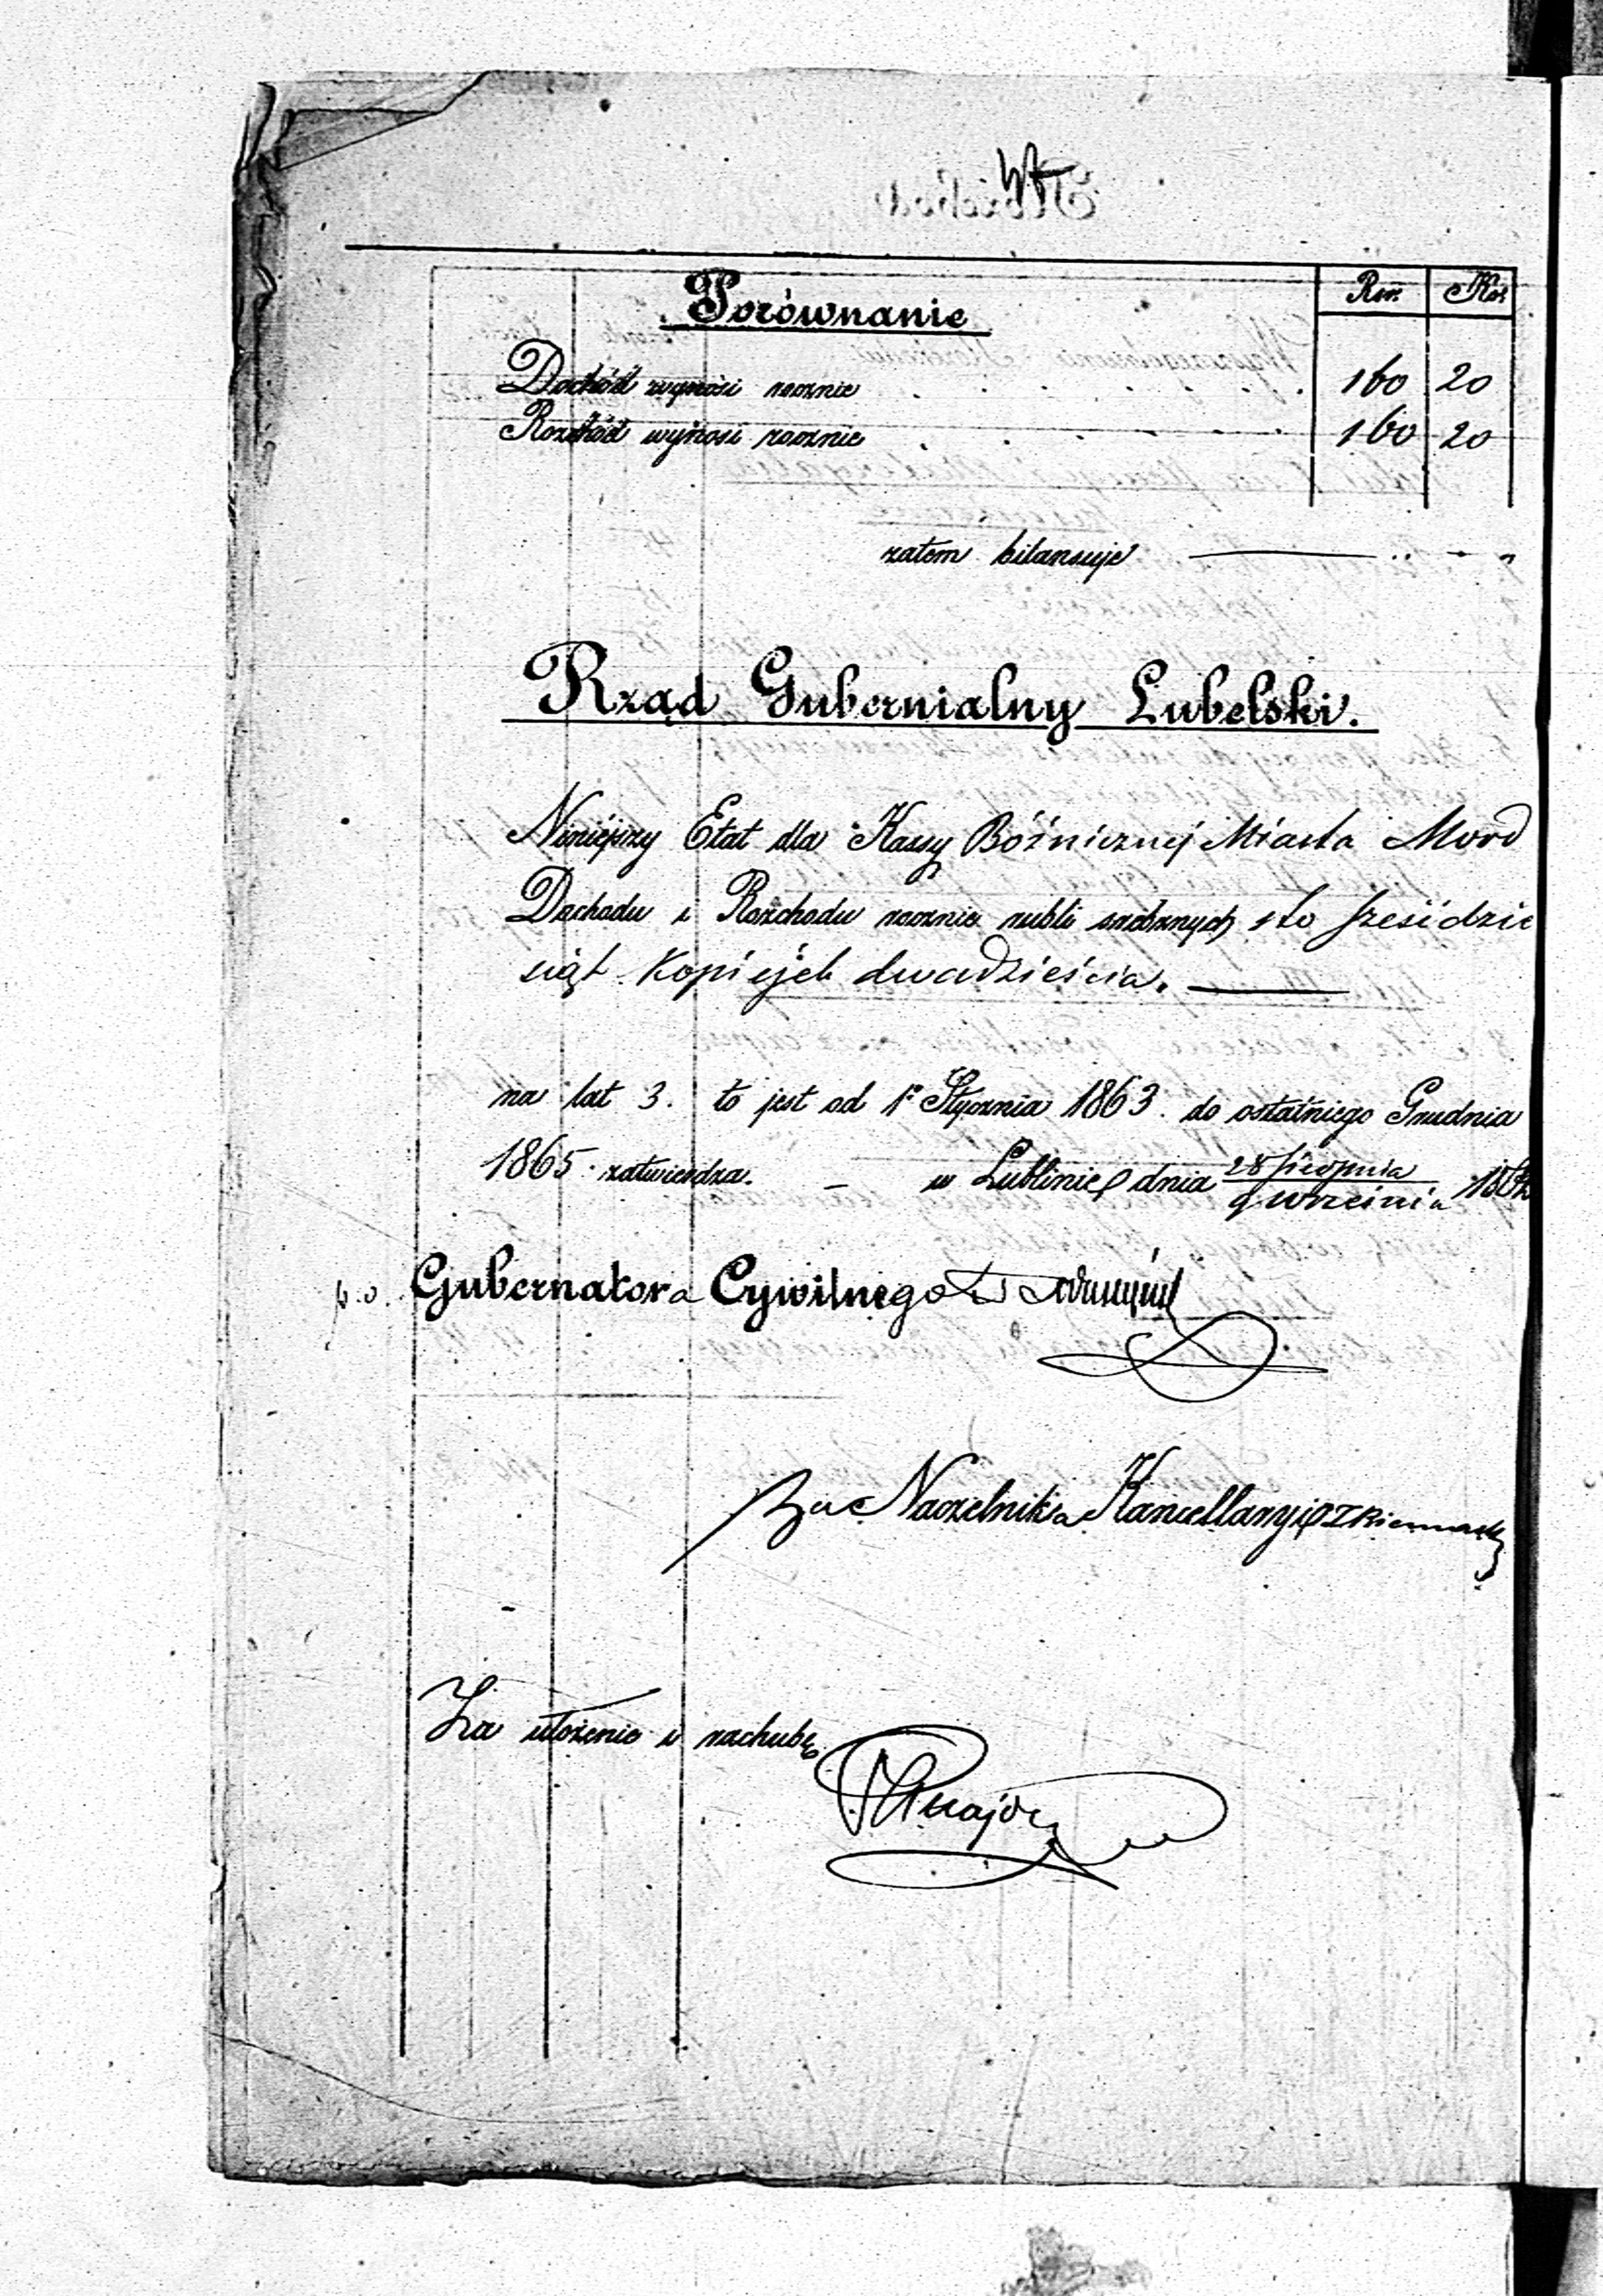 Porównanie
Rsr. Kop
Dochód wynosi rocznie . . . . . 160 20
Rozchód wynosi rocznie . . . . . 160 20
zatem bilansuje — „ — „
Rząd Gubernialny Lubelski.
Niniejszy Etat dla Kassy Bóźnicznej Miasta Mord
Dochodu i Rozchodu rocznie rubli srebrnych sto sześćdzie
siąt kopiejek dwadzieścia. —
na lat 3. to jest od 1o Stycznia 1863. do ostatniego Grudnia
1865. zatwierdza. — w Lublinie dnia 28 Sierpnia
9 Września 1862
p.o. Gubernatora Cywilnego
Za Naczelnika Kancellaryi
Za ułożenie i rachubę